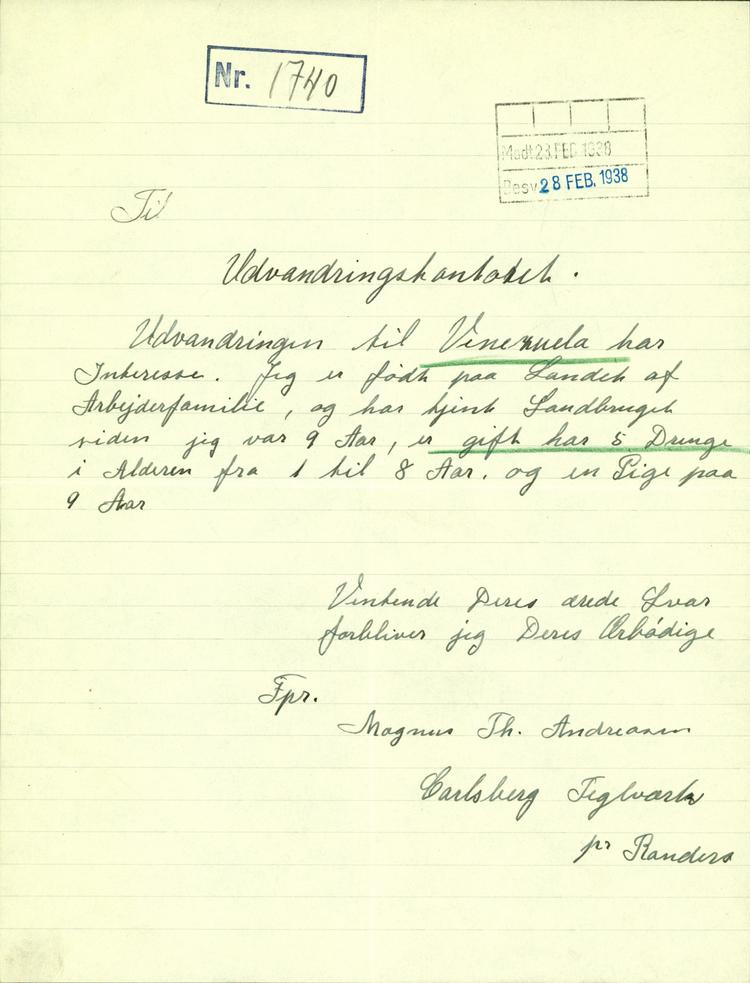 Nr. 1740
Modt. 23. FEB 1938
Besv. 28 FEB. 1938
Til
Udvandringskontoret.
Udvandringen til Venezuela har
Interesse. Jeg er født paa Landet af
Arbejderfamilie, og har tjent Landbruget
siden jeg var 9 Aar, er gift har 5 Drenge
i Alderen fra 1 til 8 Aar. og en Pige paa
9 Aar
Ventende Deres ærede Svar
forbliver jeg Deres Ærbødige
Fpr.
Magnus Th. Andreasen
Carlsberg Teglværk
pr Randers